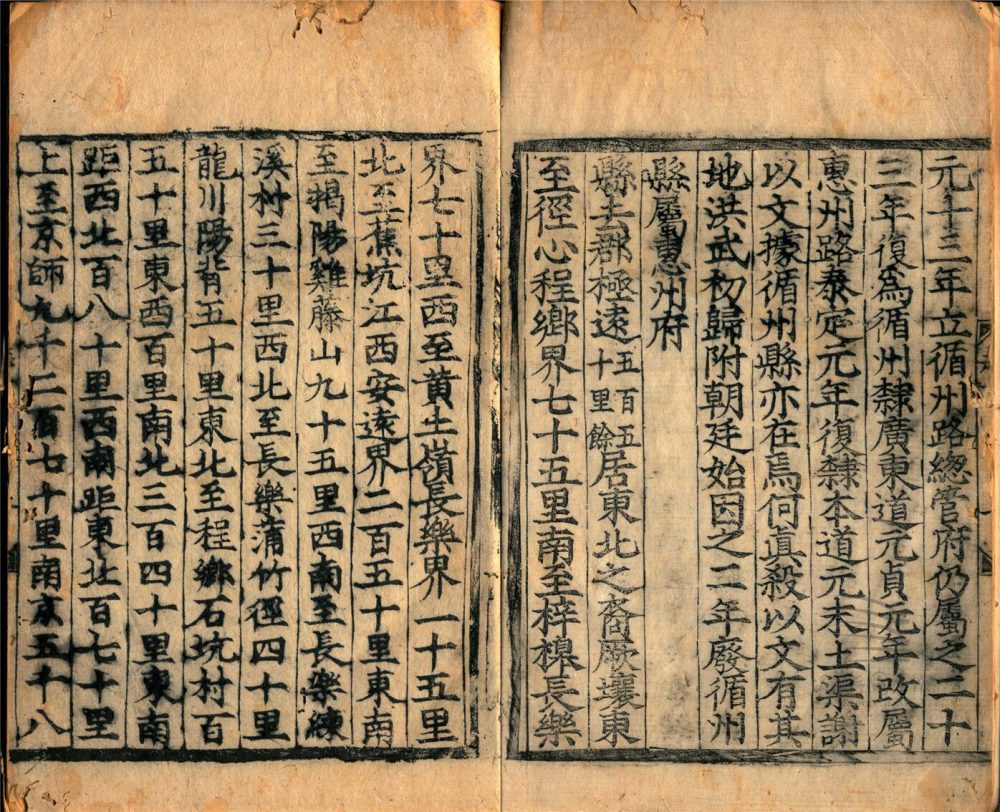 元十三年立循州路緫管府仍屬之二十
三年復爲循州隸廣東道元貞元年改屬
惠州路泰定元年復隸本道元末土渠謝
以文據循州縣亦在焉何真殺以文有其
地洪武初歸附朝廷始因之二年廢循州
縣屬惠州府
縣去郡極遠五百五十里餘居東北之裔厥壤東
至徑心程鄉界七十五里南至梓槹長樂
界七十里西至黄土嶺長樂界一十五里
北至蕉坑江西安遠界二百五十里東南
至揭陽雞藤山九十五里西南至長樂練
溪村三十里西北至長樂蒲竹徑四十里
龍川陽背五十里東北至程鄉石坑村百
五十里東西百里南北三百四十里東南
距西北百八十里西南距東北百七十里
上至京師九千二百七十里南京五千八